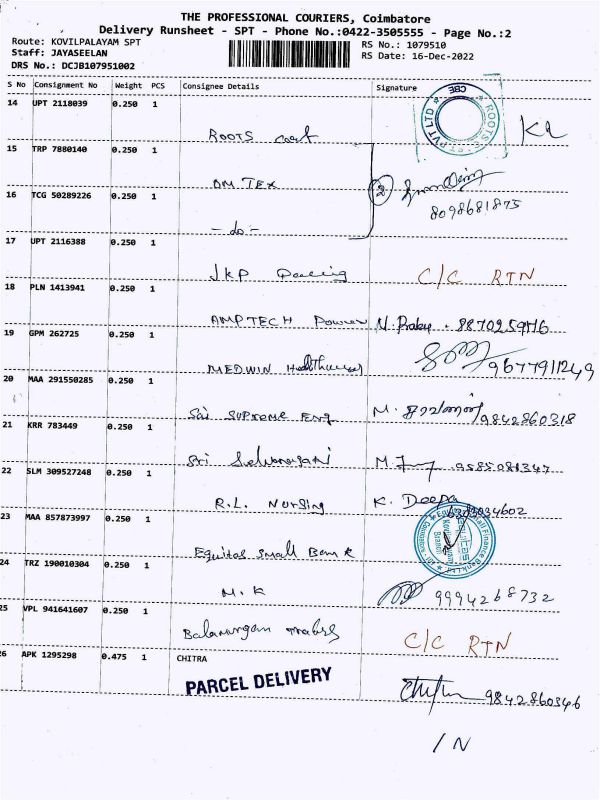 THE PROFESSIONAL COURIERS, Coimbatore
Delivery Runsheet - SPT - Phone No.:0422-3505555 - Page No.:2
Route: KOVILPALAYAM SPT
Staff: JAYASEELAN
DRS No.: DCJB107951002
RS No.: 1079510
RS Date: 16-Dec-2022
S No Consignment No Weight PCS Consignee Details Signature
14 UPT 2118039 0.250 1
ROOTS cast
ROOTS PVT LTD CBE
15 TRP 7880140 0.250 1
DM TEX
2
8098681875
16 TCG 50289226 0.250 1
- do -
17 UPT 2116388 0.250 1
JKP C/C RTN
18 PLN 1413941 0.250 1
AMPTECH Power
19 GPM 262725 0.250 1
MEDWIN 9677911249
20 MAA 291550285 0.250 1
Sai SUPREME ENG M. சரவணன் 9842860318
21 KRR 783449 0.250 1
Sri 9585081347
22 SLM 309527248 0.250 1
R.L. NURSING K. Deepa
6303934602
23 MAA 857873997 0.250 1
Equitas Small Bank
24 TRZ 190010304 0.250 1
M.K 9994268732
25 VPL 941641607 0.250 1
Balamurugan C/C RTN
26 APK 1295298 0.475 1 CHITRA
PARCEL DELIVERY
9842860346
/ N